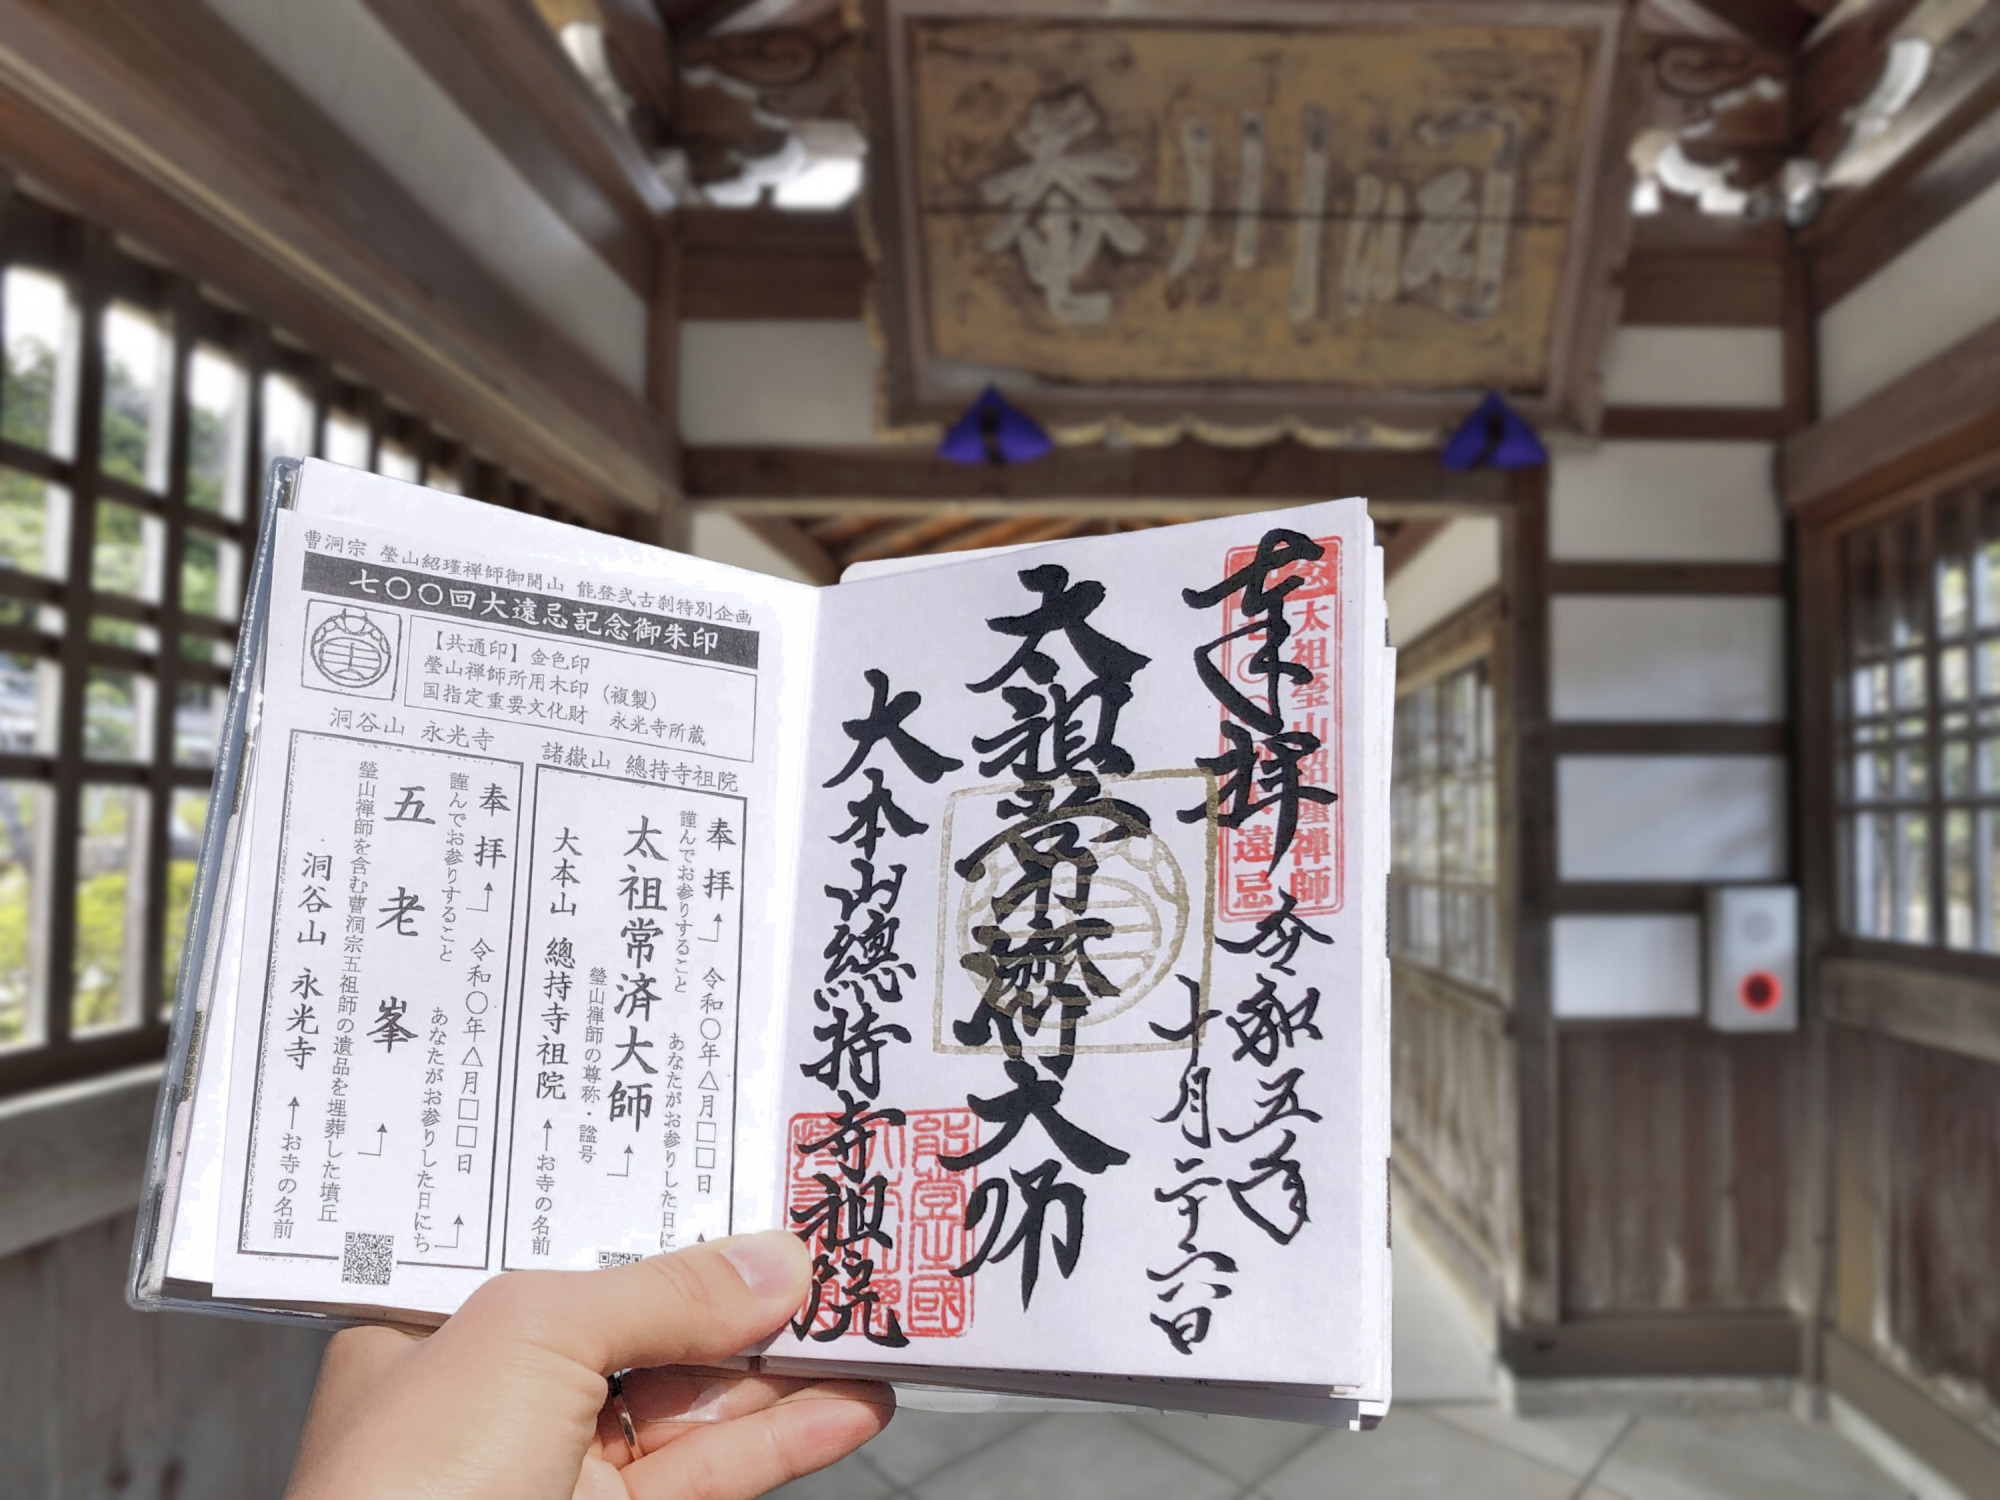 洞川庵
曹洞宗 瑩山紹瑾禅師御開山 能登弐古刹特別企画
七〇〇回大遠忌記念御朱印
【共通印】金色印
瑩山禅師所用木印(複製)
国指定重要文化財 永光寺所蔵
諸嶽山 總持寺祖院
奉拝
謹んでお参りすること
令和〇年△月□□日
あなたがお参りした日に
太祖常済大師
瑩山禅師の尊称・諡号
大本山 總持寺祖院
お寺の名前
洞谷山 永光寺
奉拝
謹んでお参りすること
令和〇年△月□□日
あなたがお参りした日にち
五老峯
瑩山禅師を含む曹洞宗五祖師の遺品を埋葬した墳丘
洞谷山 永光寺
お寺の名前
奉拝
太祖瑩山紹瑾禅師
令和五年
十月二十六日
太祖常濟大師
大本山總持寺祖院